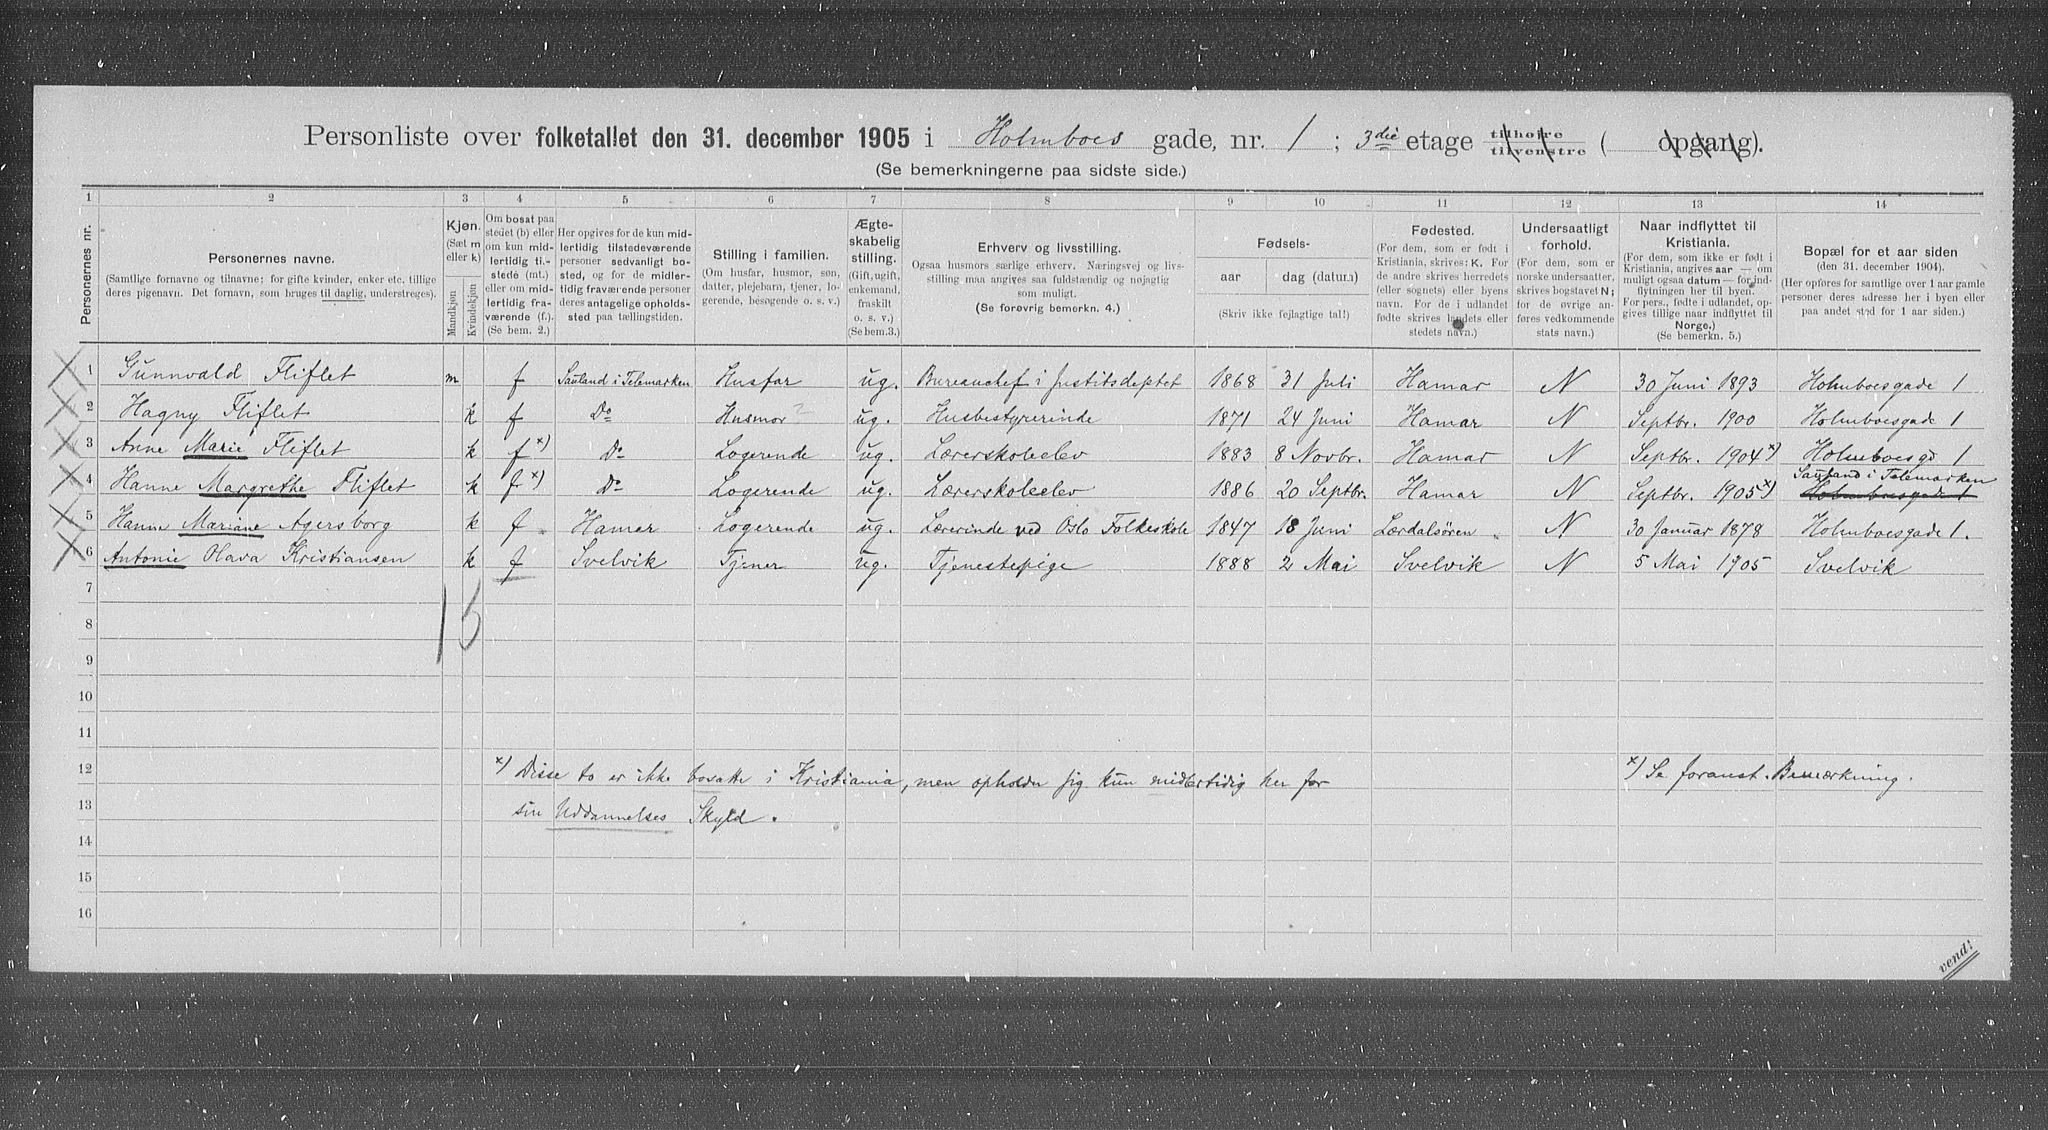 Personliste over folketallet den 31. december 1905 i Holmboes gade, nr. 1 ; 3die etage tilhøire tilvenstre ( opgang).
(Se bemerkningerne paa sidste side.)
1 2 3 4 5 6 7 8 9 10 11 12 13 14
Personernes nr.
Personernes navne.
(Samtlige fornavne og tilnavne; for gifte kvinder, enker etc. tillige
deres pigenavn. Det fornavn, som bruges til daglig, understreges).
Kjøn.
(Sæt m
eller k)
Mandkjøn
Kvindekjøn
Om bosat paa
stedet (b) eller
om kun mid-
lertidig til-
stede (mt.)
eller om mid-
lertidig fra-
værende (f.)
(Se bem. 2.)
Her opgives for de kun mid-
lertidig tilstedeværende
personer sedvanligt bo-
sted, og for de midler-
tidig fraværende personer
deres antagelige opholds-
sted paa tællingstiden.
Stilling i familien.
(Om husfar, husmor, søn,
datter, plejebarn, tjener, lo-
gerende, besøgende o. s. v.)
Ægte-
skabelig
stilling.
(Gift, ugift,
enkemand,
fraskilt
o. s. v.)
(Se bem.3.)
Erhverv og livsstilling.
Ogsaa husmors særlige erhverv. Næringsvej og livs-
stilling maa angives saa fuldstændig og nøjagtig
som muligt.
(Se forøvrig bemerkn. 4.)
Fødsels-
aar dag (datum.)
(Skriv ikke fejlagtige tal!)
Fødested.
(For dem, som er født i
Kristiania, skrives: K. For
de andre skrives herredets
(eller sognets) eller byens
navn. For de i udlandet
fødte skrives landets eller
stedets navn.)
Undersaatligt
forhold.
(For dem, som er
norske undersaatter,
skrives bogstavet N;
for de øvrige an-
føres vedkommende
stats navn.)
Naar indflyttet til
Kristiania.
(For dem, som ikke er født i
Kristiania, angives aar — om
muligt ogsaa datum — for ind-
flytningen her til byen.
For pers., fødte i udlandet, op-
gives tillige naar indflyttet til
Norge.)
(Se bemerkn. 5.)
Bopæl for et aar siden
(den 31. december 1904).
(Her opføres for samtlige over 1 aar gamle
personer deres adresse her i byen eller
paa andet sted for 1 aar siden.)
1 Gunnvald Fliflet m f Sauland i Telemarken Husfar ug. Bureauchef i Justitsdeptet 1868 31 Juli Hamar N 30 Juni 1893 Holmboesgade 1
2 Hagny Fliflet k f Do Husmor ? ug. Husbestyrerinde 1871 24 Juni Hamar N Septbr. 1900 Holmboesgade 1
3 Anne Marie Fliflet k f x) Do Logerende ug. Lærerskoleelev 1883 8 Novbr. Hamar N Septbr. 1904 x) Holmboesgd 1
4 Hanne Margrethe Fliflet k f x) Do Logerende ug. Lærerskoleelev 1886 20 Septbr. Hamar N Septbr. 1905 x) Sauland i Telemarken Holmboesgade 1
5 Hanne Mariane Agersborg k f Hamar Logerende ug. Lærerinde ved Oslo Folkeskole 1847 18 Juni Lærdalsören N 30 Januar 1878 Holmboesgade 1.
6 Antonie Olava Kristiansen k f Svelvik Tjener ug. Tjenestepige 1888 2 Mai Svelvik N 5 Mai 1905 Svelvik
7
1 5
8
9
10
11
12 x) Disse to er ikke bosatte i Kristiania, men opholder sig kun midlertidig her for x) Se foranst. Bemærkning.
13 sin Uddannelses Skyld.
14
15
16
vend!